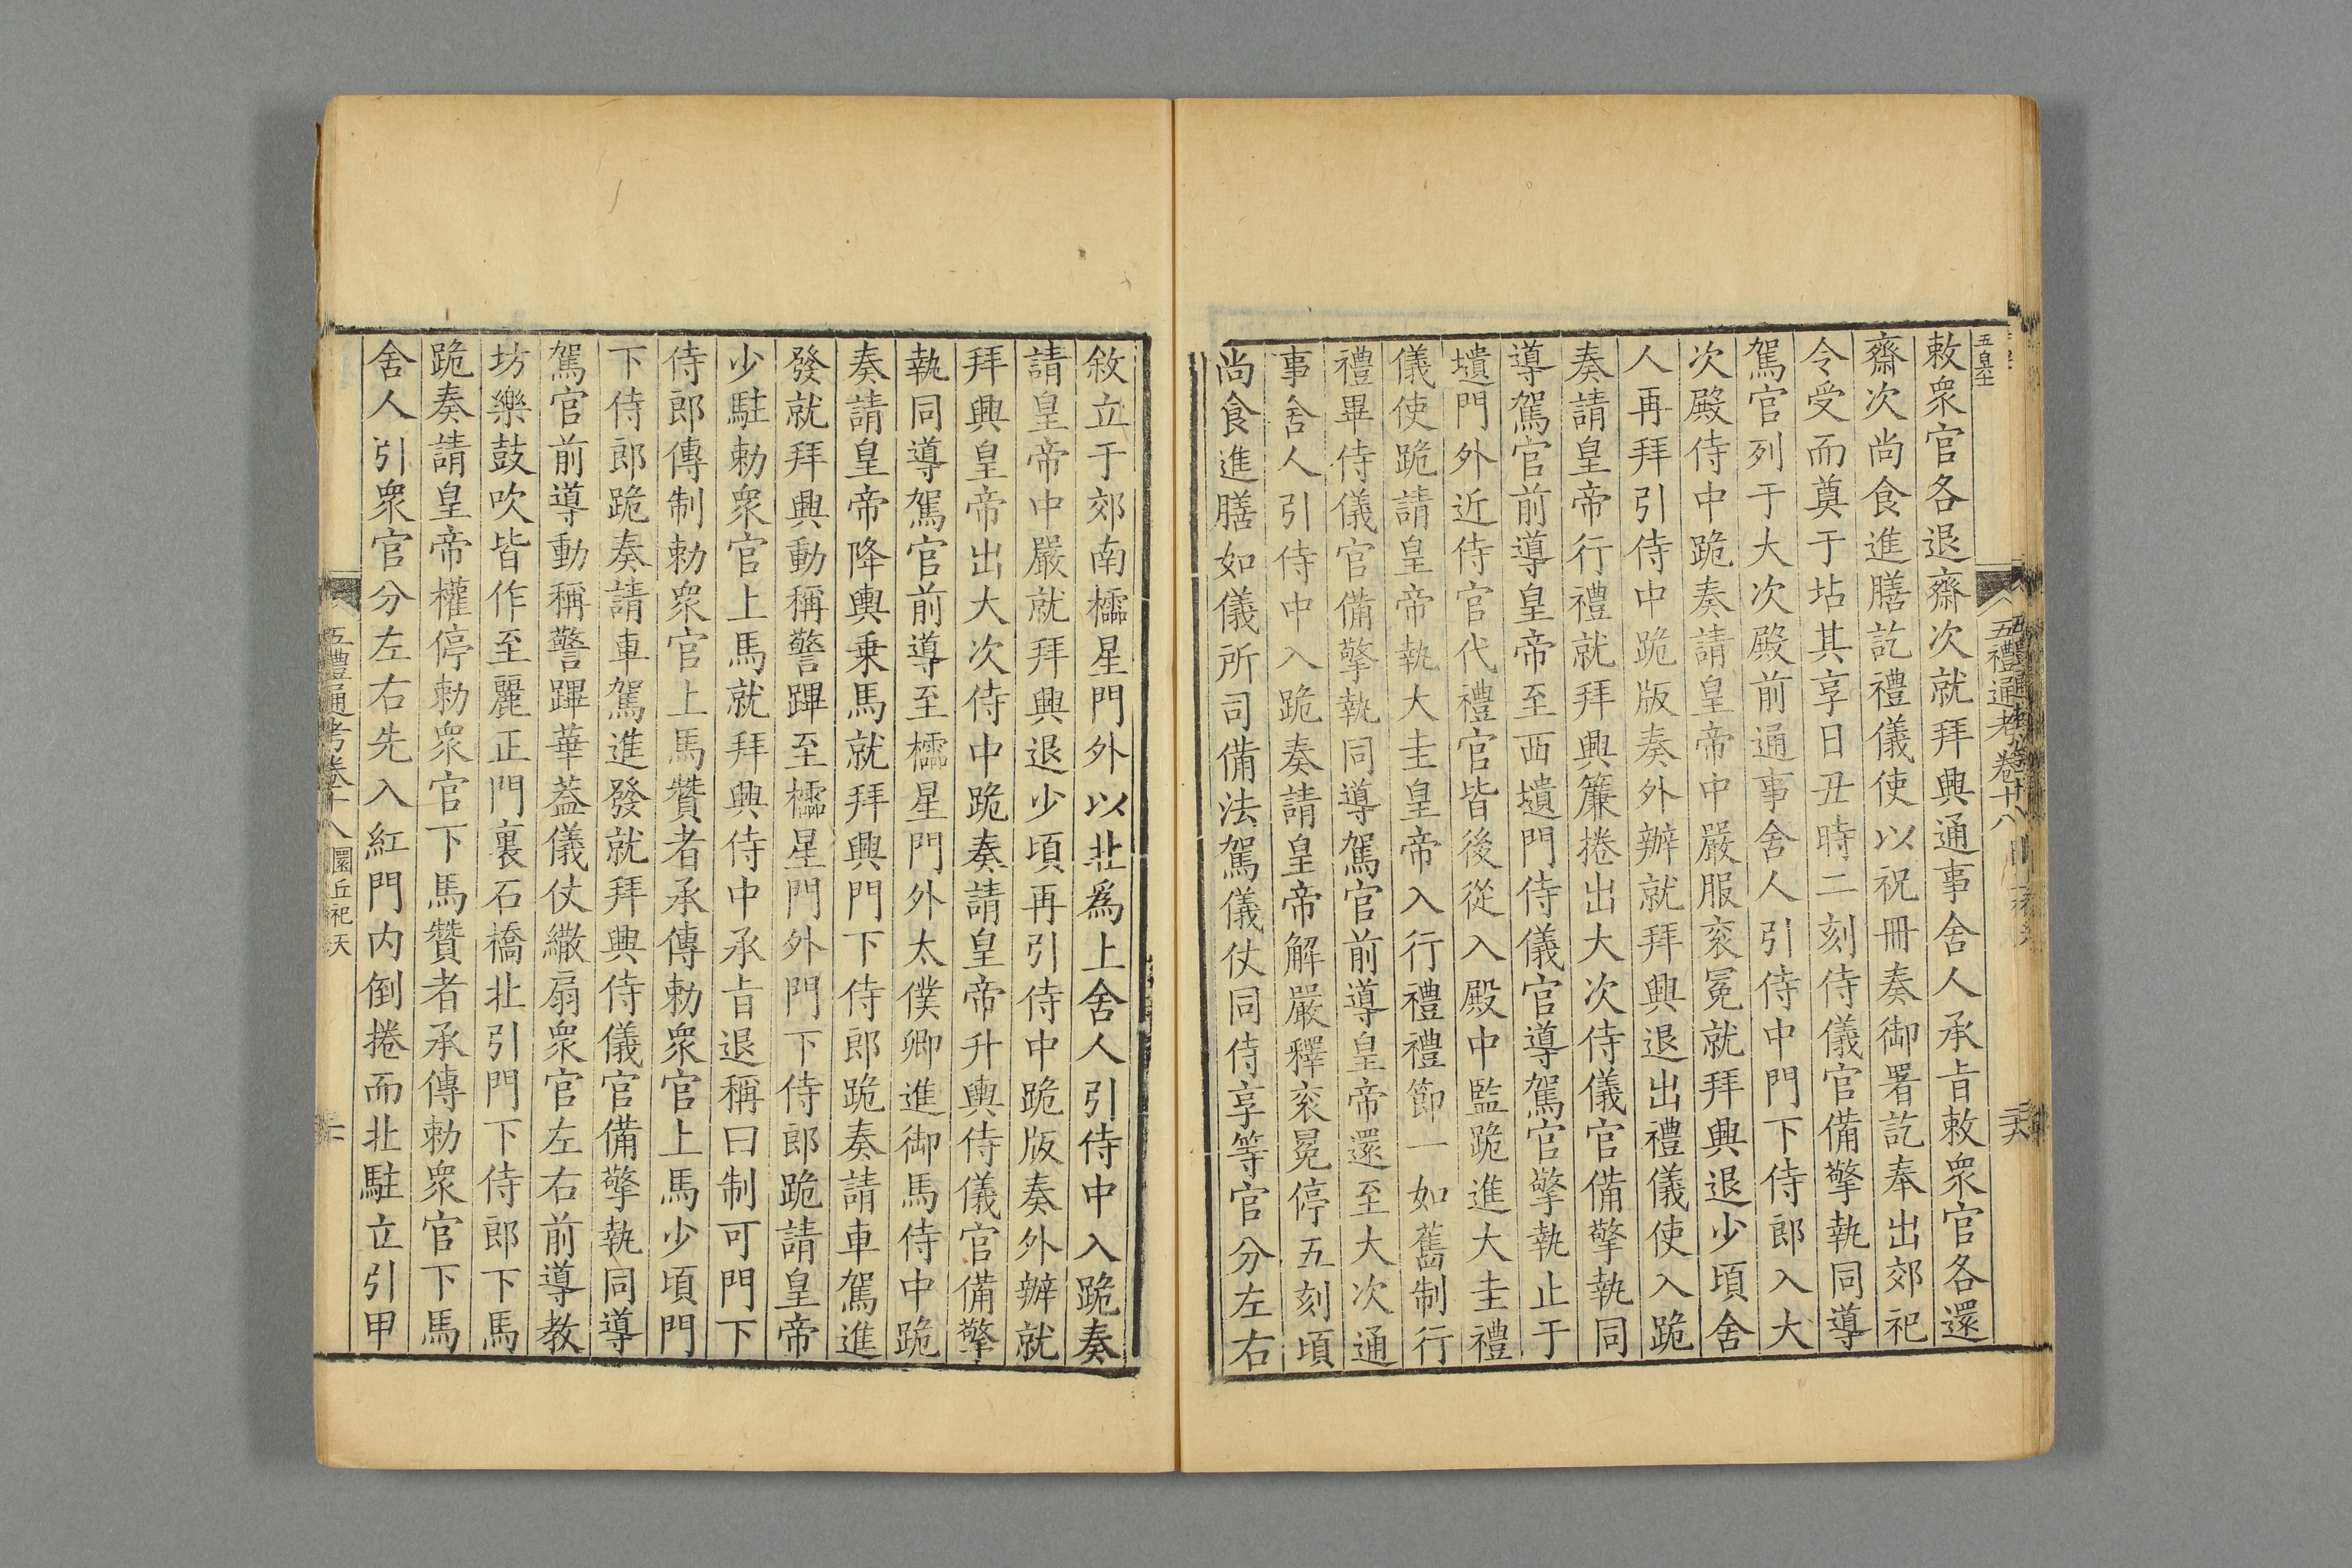 五禮通考卷十八
敕衆官各退齋次就拜興通事舍人承旨敕衆官各還
齋次尚食進膳訖禮儀使以祝冊奏御署訖奉出郊祀
令受而奠于坫其享日丑時二刻侍儀官備擎執同導
駕官列于大次殿前通事舍人引侍中門下侍郎入大
次殿侍中跪奏請皇帝中嚴服衮冕就拜興退少頃舍
人再拜引侍中跪版奏外辦就拜興退出禮儀使入跪
奏請皇帝行禮就拜興簾捲出大次侍儀官備擎執同
導駕官前導皇帝至西壝門侍儀官導駕官擎執止于
壝門外近侍官代禮官皆後從入殿中監跪進大圭禮
儀使跪請皇帝執大圭皇帝入行禮禮節一如舊制行
禮畢侍儀官備擎執同導駕官前導皇帝還至大次通
事舍人引侍中入跪奏請皇帝解嚴釋衮冕停五刻頃
尚食進膳如儀所司備法駕儀仗同侍享等官分左右
敘立于郊南櫺星門外以北爲上舍人引侍中入跪奏
請皇帝中嚴就拜興退少頃再引侍中跪版奏外辦就
拜興皇帝出大次侍中跪奏請皇帝升輿侍儀官備擎
執同導駕官前導至櫺星門外太僕卿進御馬侍中跪
奏請皇帝降輿乗馬就拜興門下侍郎跪奏請車駕進
發就拜興動稱警蹕至櫺星門外門下侍郎跪請皇帝
少駐勅衆官上馬就拜興侍中承旨退稱曰制可門下
侍郎傳制勅衆官上馬贊者承傳勅衆官上馬少頃門
下侍郎跪奏請車駕進發就拜興侍儀官備擎執同導
駕官前導動稱警蹕華蓋儀仗繖扇衆官左右前導教
坊樂鼓吹皆作至麗正門裏石橋北引門下侍郎下馬
跪奏請皇帝權停勅衆官下馬贊者承傳勅衆官下馬
舍人引衆官分左右先入紅門内倒捲而北駐立引甲
五禮通考卷十八 圜丘祀天